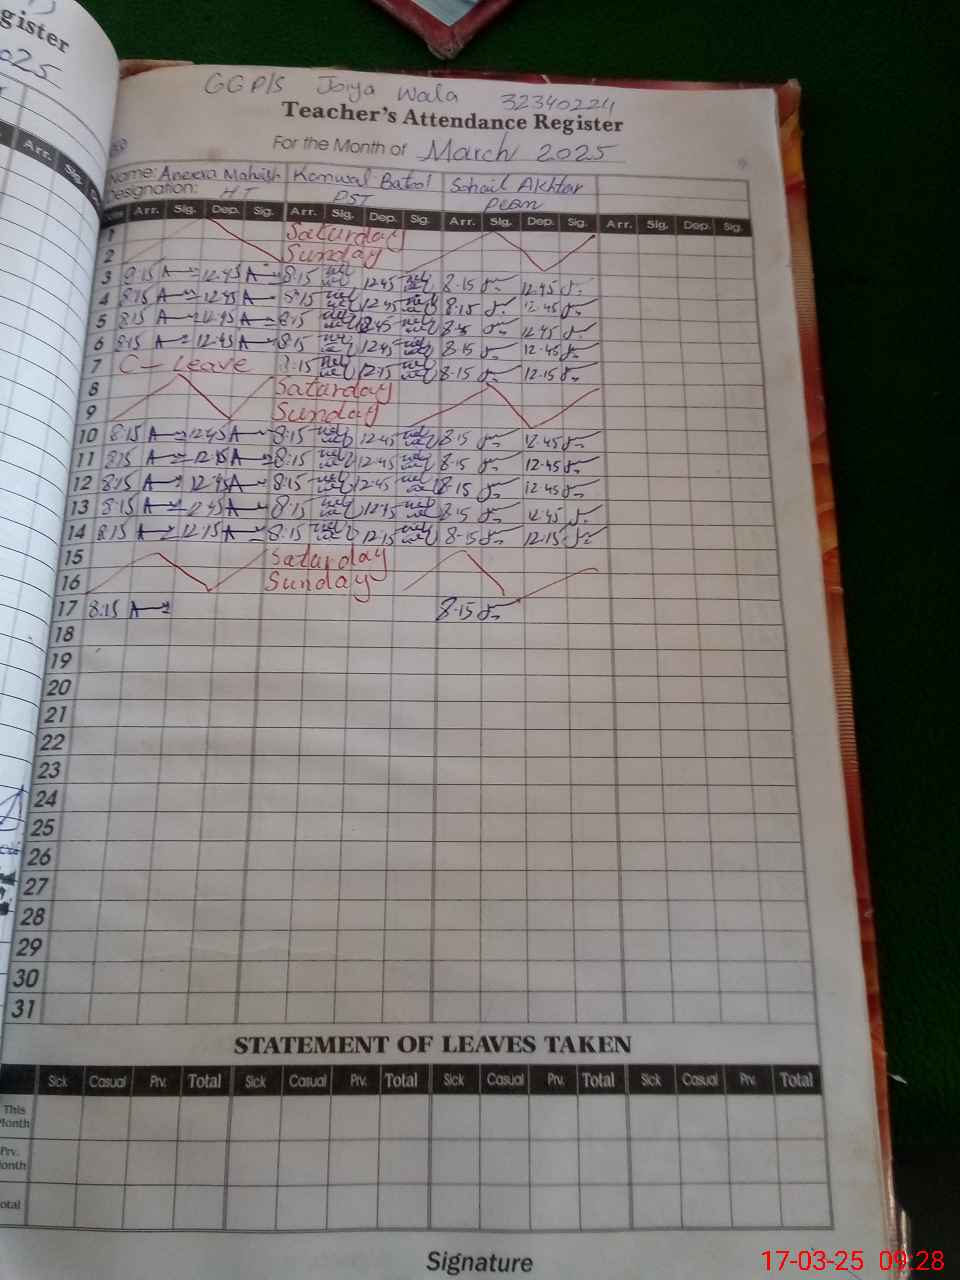 gister
025
Arr. Sig.
GGP/S Joiya Wala 32340224
Teacher's Attendance Register
For the Month of March 2025
Name: Aneeva Mahvish Kanwal Batool Sohail Akhtar
Designation: HT PST Peon
Arr. Sig. Dep. Sig. Arr. Sig. Dep. Sig. Arr. Sig. Dep. Sig. Arr. Sig. Dep. Sig.
1 Saturday
2 Sunday
3 8:15 12:45 8:15 12:45 8-15 12.45
4 8:15 12:45 8:15 12:45 8-15 12.45
5 8:15 12:45 8:15 12:45 8-15 12.45
6 8:15 12:45 8:15 12:45 8-15 12-45
7 C- Leave 8:15 12:15 8-15 12-15
8 Saturday
9 Sunday
10 8:15 12:45 8:15 12:45 8-15 12.45
11 8:15 12:45 8:15 12:45 8-15 12-45
12 8:15 12:45 8:15 12-45 8-15 12-45
13 8:15 12:45 8:15 12:45 8-15 12.45
14 8:15 12:15 8:15 12:15 8-15 12-15
15 Saturday
16 Sunday
17 8:15 8-15
18
19
20
21
22
23
24
25
26
27
28
29
30
31
STATEMENT OF LEAVES TAKEN
Sick Casual Prv. Total Sick Casual Prv. Total Sick Casual Prv. Total Sick Casual Prv. Total
This Month
Prv. onth
otal
Signature
17-03-25 09:28